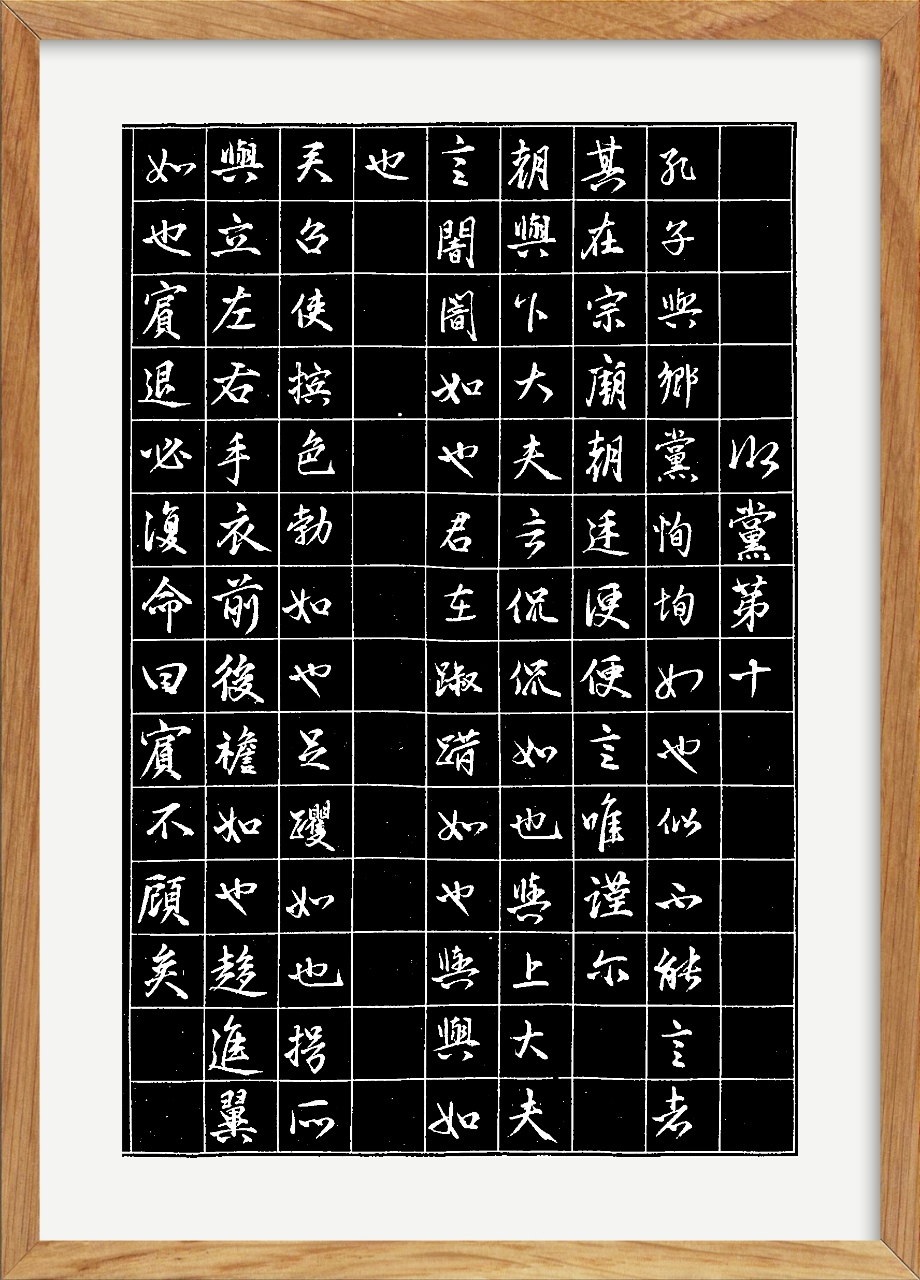 鄉黨第十
孔子與鄉黨恂恂如也似不能言者
其在宗廟朝廷便便言唯謹尔
朝與下大夫言侃侃如也與上大夫
言闇闇如也君在踧踖如也與與如
也
君召使擯色勃如也足躩如也揖所
與立左右手衣前後襜如也趍進翼
如也賓退必復命曰賓不顧矣